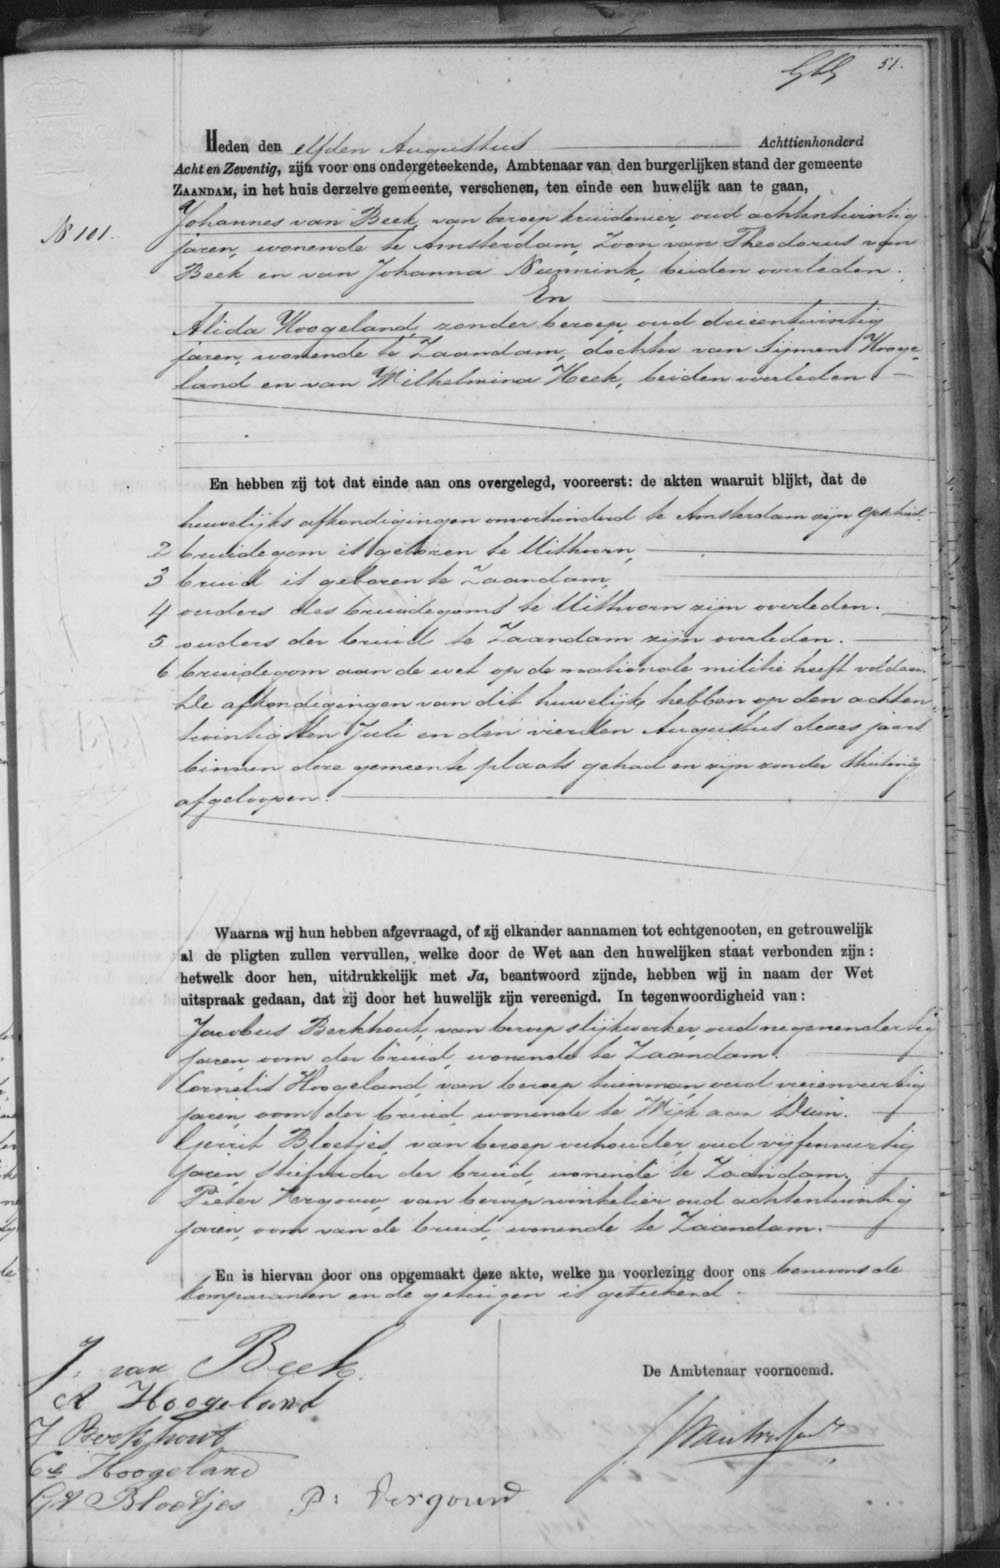 51.
Heden den elfden Augustus Achttienhonderd
Acht en Zeventig, zijn voor ons ondergeteekende, Ambtenaar van den burgerlijken stand der gemeente
ZAANDAM, in het huis derzelve gemeente, verschenen, ten einde een huwelijk aan te gaan,
Johannes van Beek, van beroep kruidenier, oud achtentwintig
N 101.
jaren, wonende te Amsterdam, Zoon van Theodorus van
Beek en van Johanna Nunnink, beiden overleden.
En
Alida Hoogeland, zonder beroep, oud drieentwintig
jaren, wonende te Zaandam, dochter van Sijmen Hooge-
land en van Wilhelmina Heek, beiden overleden
En hebben zij tot dat einde aan ons overgelegd, vooreerst: de akten waaruit blijkt, dat de
huwelijks afkondigingen onverhinderd te Amsterdam zijn
2 bruidegom is geboren te Uithoorn,
3 bruid is geboren te Zaandam,
4 ouders des bruidegoms te Uithoorn zijn overleden.
5 ouders der bruid te Zaandam zijn overleden.
6 bruidegom aan de wet op de nationale militie heeft voldaan.
De afkondigingen van dit huwelijk hebben op den achten
twintigsten Juli en den vierden Augustus dezes jaars
binnen deze gemeente plaats gehad en zijn zonder stuiting
afgeloopen.
Waarna wij hun hebben afgevraagd, of zij elkander aannamen tot echtgenooten, en getrouwelijk
al de pligten zullen vervullen, welke door de Wet aan den huwelijken staat verbonden zijn:
hetwelk door hen, uitdrukkelijk met Ja, beantwoord zijnde, hebben wij in naam der Wet
uitspraak gedaan, dat zij door het huwelijk zijn vereenigd. In tegenwoordigheid van:
Jacobus Berkhout, van beroep slijkwerker, oud negenendertig
jaren, oom der bruid, wonende te Zaandam.
Cornelis Hoogeland, van beroep tuinman, oud vierenveertig
jaren, oom der bruid, wonende te Wijk aan Duin.
Gerrit Bloetjes, van beroep veehouder, oud vijfenveertig
jaren, stiefvader der bruid, wonende te Zaandam.
Pieter Vergouw, van beroep winkelier, oud achtentwintig
jaren, oom van de bruid, wonende te Zaandam.
En is hiervan door ons opgemaakt deze akte, welke na voorlezing door ons benevens de
komparanten en de getuigen is geteekend.
J. van Beek.
De Ambtenaar voornoemd.
A Hoogeland
J Berkhout
Cs Hoogeland
Gt Bloetjes P: Vergouw